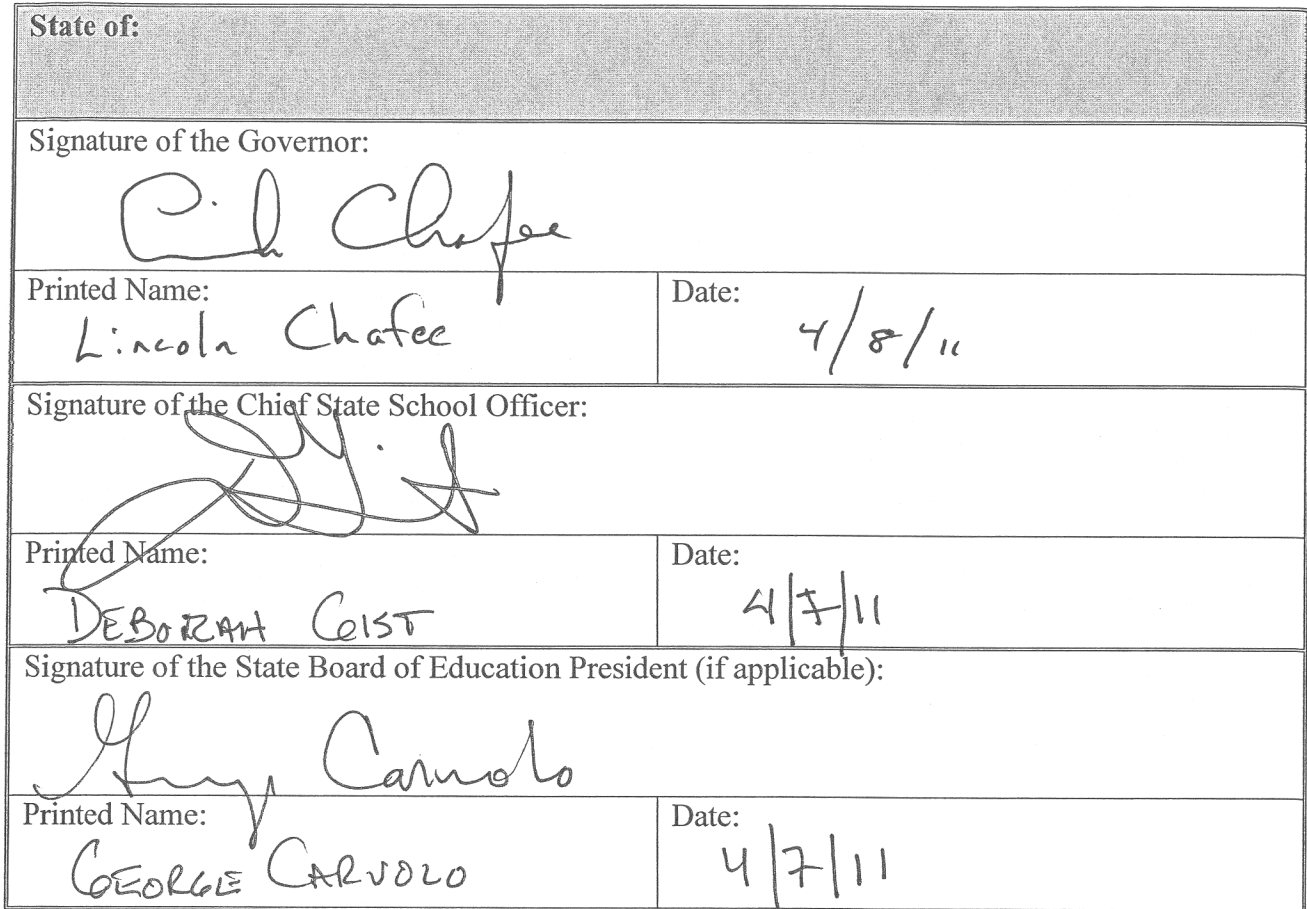 State of:
Signature of the Governor:
Chafee
Printed Name:
Lincoln Chafee
Date:
4/8/11
Signature of the Chief State School Officer:
Printed Name:
DEBORAH GIST
Date:
4/7/11
Signature of the State Board of Education President (if applicable):
Printed Name:
GEORGE CARUOLO
Date:
4/7/11